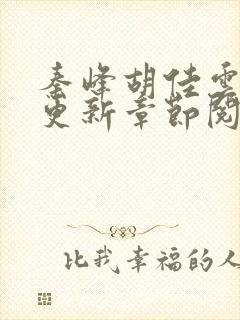 秦峰胡佳雲
更新章節閱
比我幸福的人